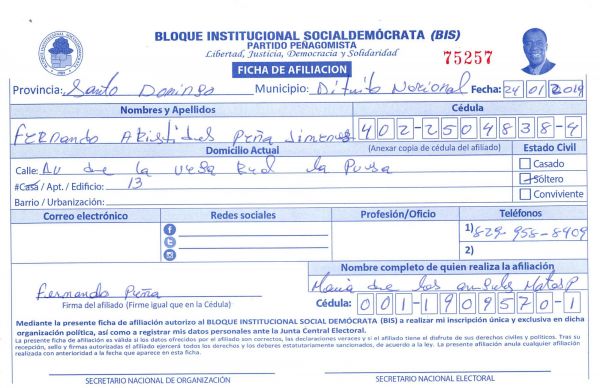 BLOQUE INSTITUCIONAL SOCIALDEMÓCRATA (BIS)
PARTIDO PEÑAGOMISTA
Libertad, Justicia, Democracia y Solidaridad
75257
FICHA DE AFILIACION
Provincia: Santo Domingo Municipio: Ditrito Nacional Fecha: 24/01/2019
Nombres y Apellidos Cédula
FERNANDO Aristides Peña Jimenes 402-2504838-4
Domicilio Actual (Anexar copia de cédula del afiliado) Estado Civil
Calle: AV de la Vega Real la Puya Casado
#Casa / Apt. / Edificio: 13 Soltero
Barrio / Urbanización: Conviviente
Correo electrónico Redes sociales Profesión/Oficio Teléfonos
1) 829-958-8409
2)
Nombre completo de quien realiza la afiliación
Fernando Peña Maria de los Matos P
Firma del afiliado (Firme igual que en la Cédula) Cédula: 001-1909570-1
Mediante la presente ficha de afiliación autorizo al BLOQUE INSTITUCIONAL SOCIAL DEMÓCRATA (BIS) a realizar mi inscripción única y exclusiva en dicha
organización política, así como a registrar mis datos personales ante la Junta Central Electoral.
La presente ficha de afiliación es válida si los datos ofrecidos por el afiliado son correctos, las declaraciones veraces y si el afiliado tiene el disfrute de sus derechos civiles y políticos. Tras su
recepción, sello y firmas autorizadas el afiliado ejercerá todos los derechos y los deberes estatutariamente sancionados, de acuerdo a la ley. La presente afiliación anula cualquier afiliación
realizada con anterioridad a la fecha que aparece en esta ficha.
SECRETARIO NACIONAL DE ORGANIZACIÓN SECRETARIO NACIONAL ELECTORAL